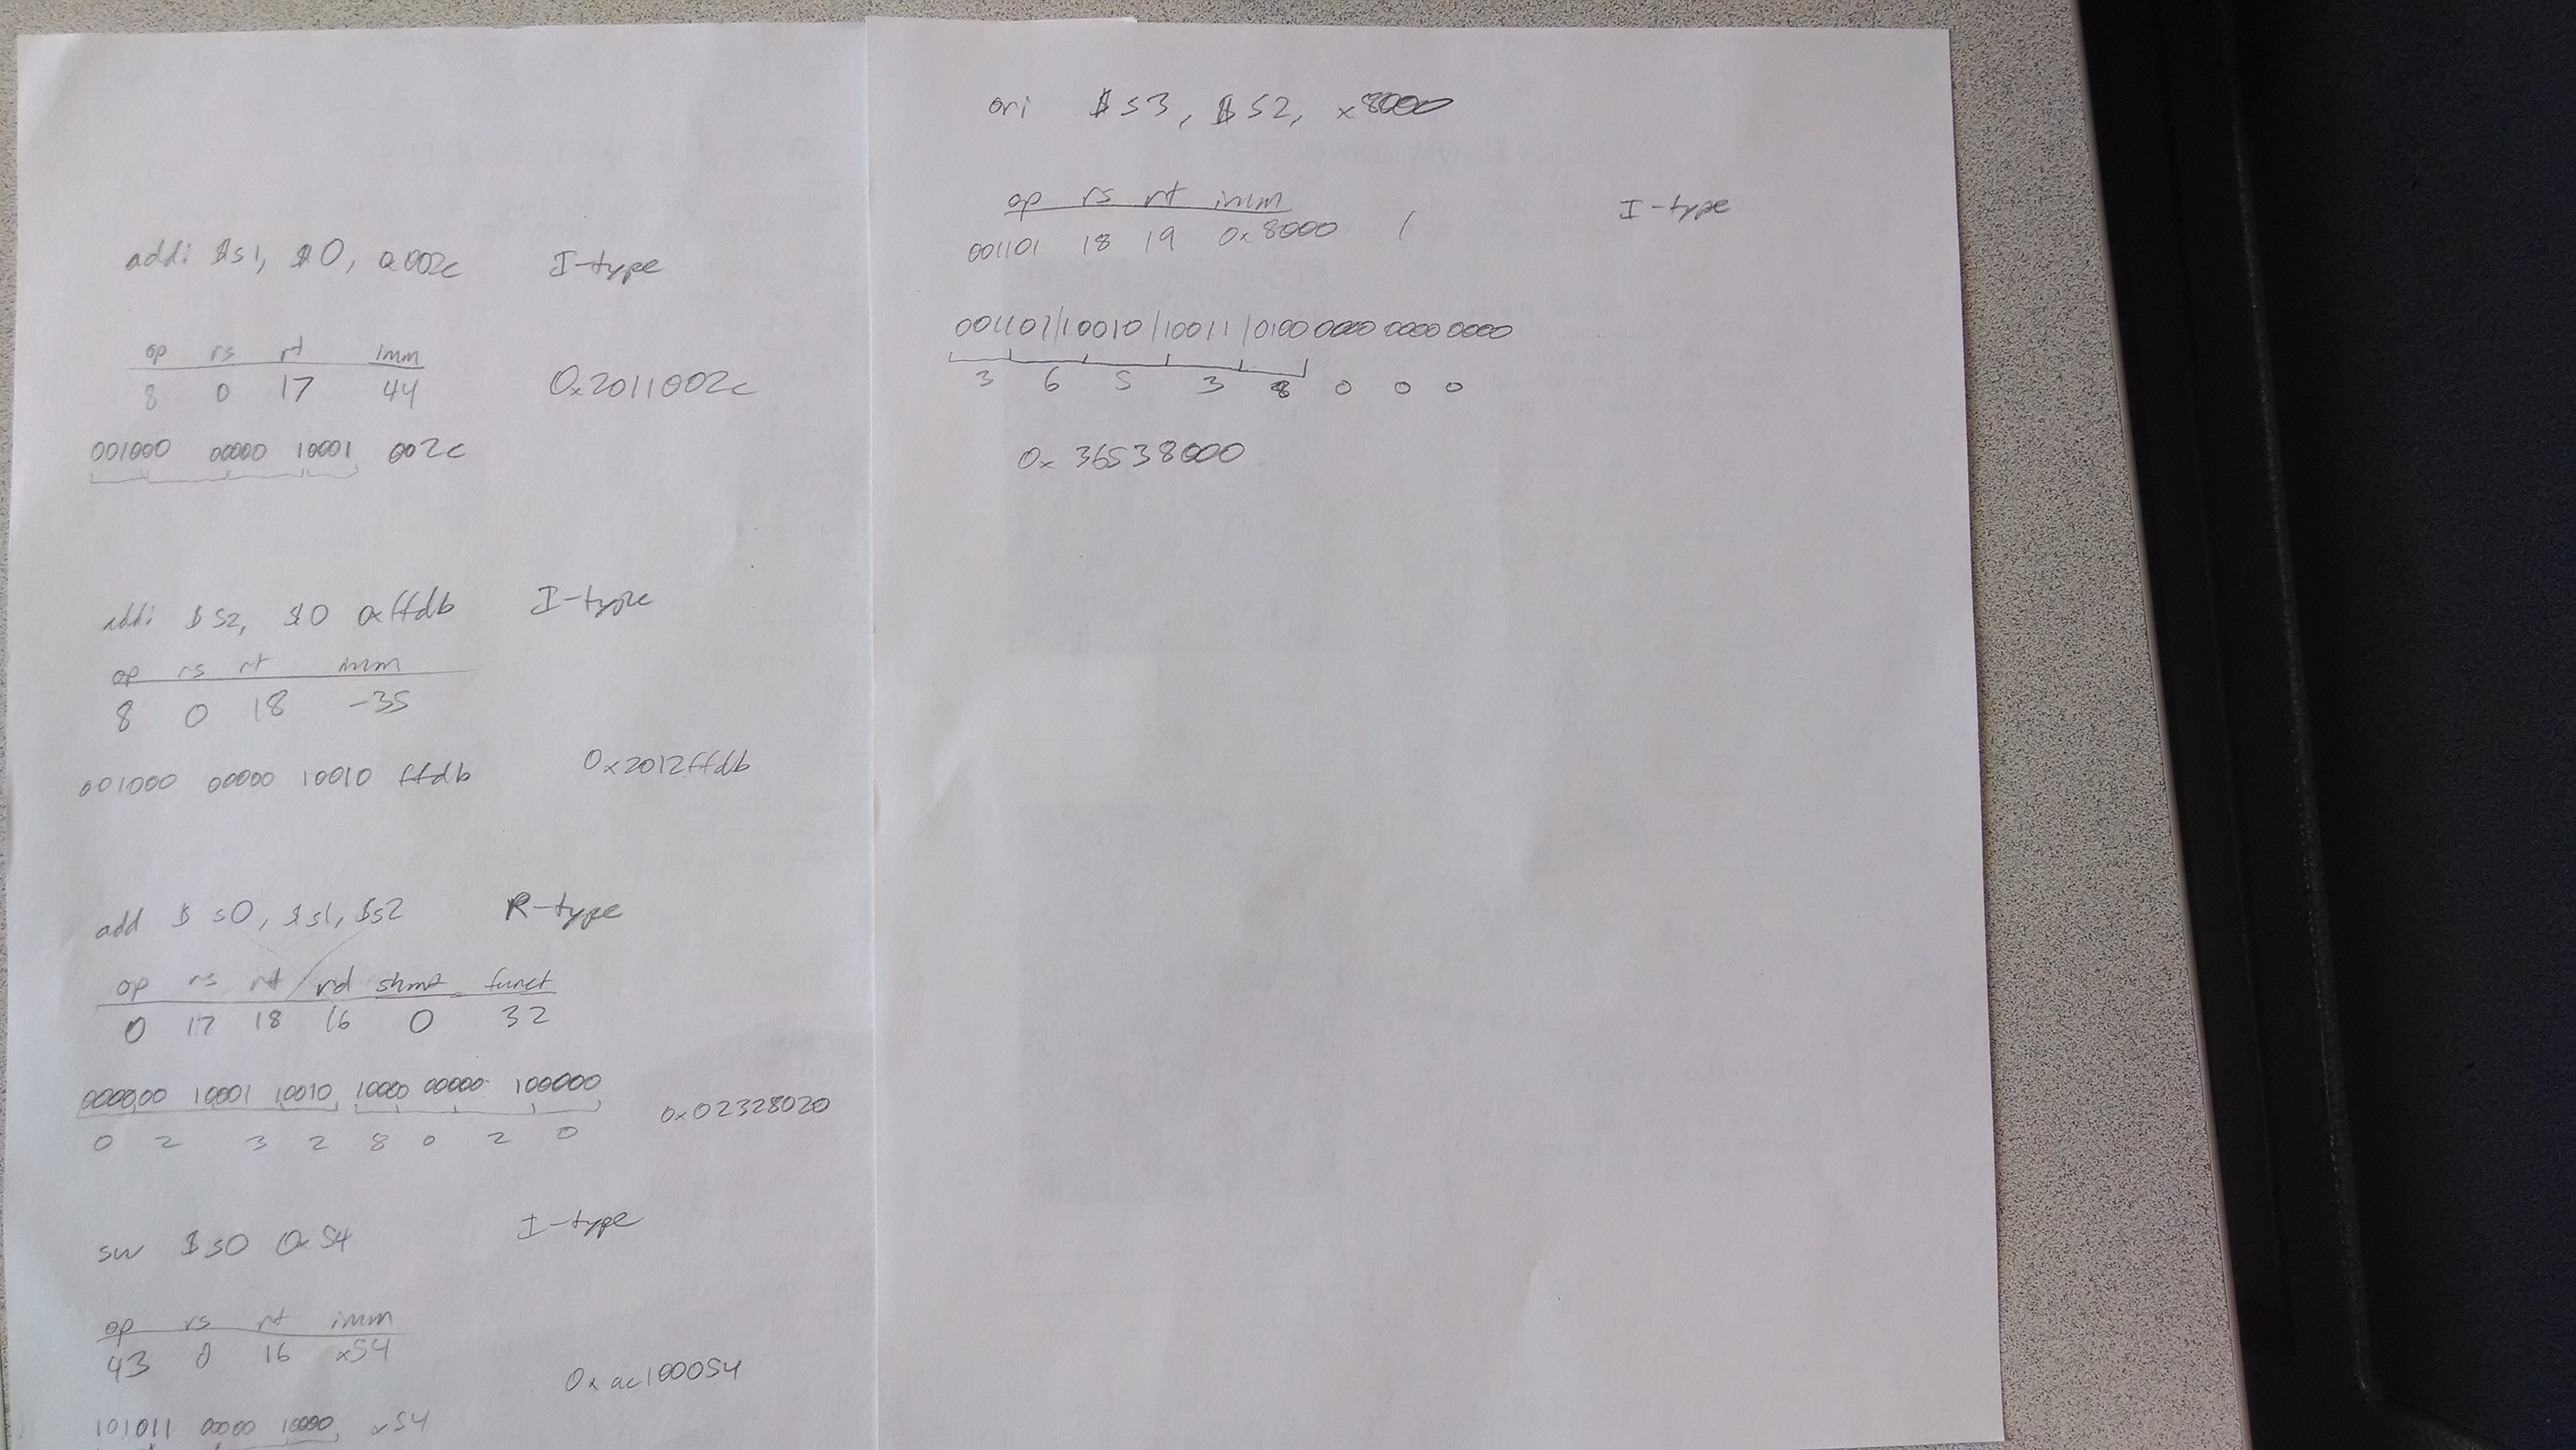 addi $s1, $0, 0x002c I-type
op rs rt imm
8 0 17 44 0x2011002c
001000 00000 10001 002c
addi $s2, $0 0xffdb I-type
op rs rt imm
8 0 18 -35
001000 00000 10010 ffdb 0x2012ffdb
add $s0, $s1, $s2 R-type
op rs rt rd shmt funct
0 17 18 16 0 32
000000 10001 10010 10000 00000 100000 0x02328020
0 2 3 2 8 0 2 0
sw $s0 0x54 I-type
op rs rt imm
43 0 16 x54 0xac100054
101011 00000 10000 x54
ori $s3, $s2, x8000
op rs rt imm I-type
001101 18 19 0x8000 (
001101/10010/10011/0100 0000 0000 0000
3 6 5 3 8 0 0 0
0x36538000